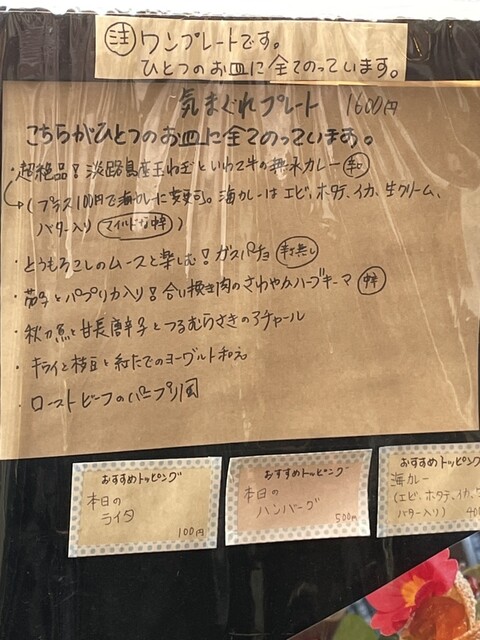 注 ワンプレートです。
ひとつのお皿に全てのっています。
気まぐれプレート 1600円
こちらがひとつのお皿に全てのっています。
・超絶品!淡路島産玉ねぎといわて牛の無水カレー 辛い
(プラス100円で海カレーに変更可。海カレーはエビ、ホタテ、イカ、生クリーム、
バター入り マイルドな中辛)
・とうもろこしのムースと楽しむ!ガスパチョ 辛さ無し
・茄子とパプリカ入り!合い挽き肉のさわやかハーブキーマ 中辛
・秋刀魚と甘長唐辛子とつるむらさきのアチャール
・キライと枝豆と紅たでのヨーグルト和え
・ローストビーフのパニプリ風
おすすめトッピング
本日の
ライタ
100円
おすすめトッピング
本日の
ハンバーグ
500円
おすすめトッピング
海カレー
(エビ、ホタテ、イカ、
バター入り) 400